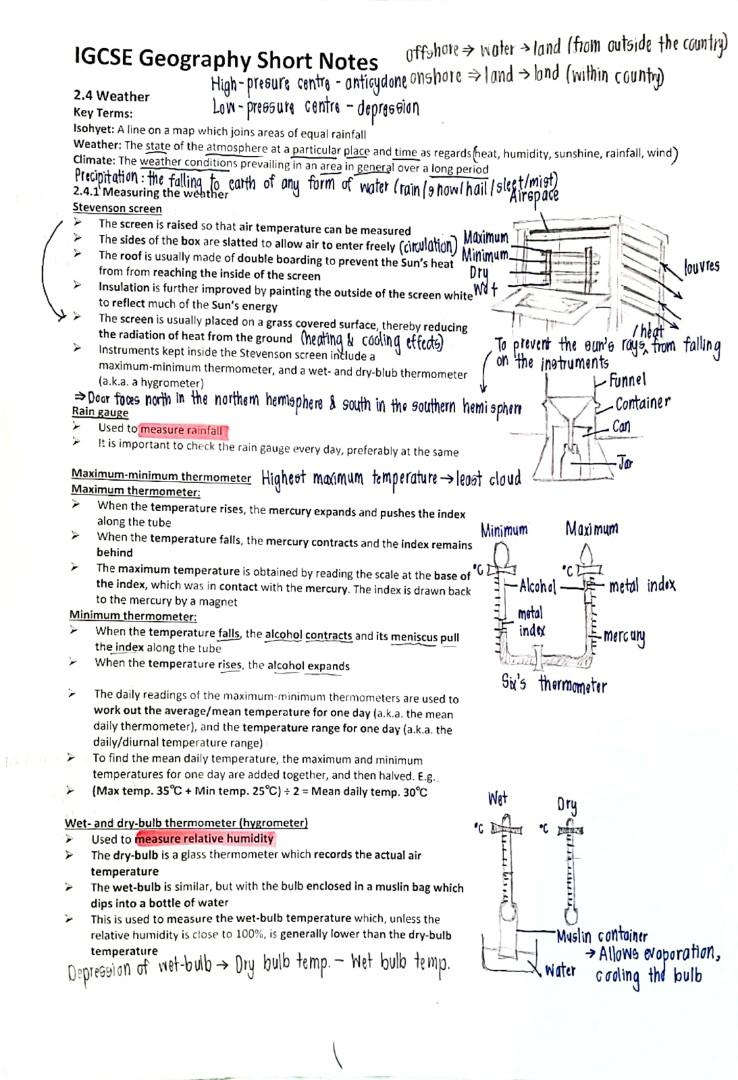 IGCSE Geography Short Notes
offshore ⇒ water → land (from outside the country)
High-presure centre - anticyclone
onshore ⇒ land → land (within country)
2.4 Weather
Low-pressure centre - depression
Key Terms:
Isohyet: A line on a map which joins areas of equal rainfall
Weather: The state of the atmosphere at a particular place and time as regards (heat, humidity, sunshine, rainfall, wind)
Climate: The weather conditions prevailing in an area in general over a long period
Precipitation: the falling to earth of any form of water (rain/snow/hail/sleet/mist)
2.4.1 Measuring the weather
Airspace
Stevenson screen
➤ The screen is raised so that air temperature can be measured
➤ The sides of the box are slatted to allow air to enter freely (circulation)
➤ The roof is usually made of double boarding to prevent the Sun's heat
from from reaching the inside of the screen
➤ Insulation is further improved by painting the outside of the screen white
to reflect much of the Sun's energy
➤ The screen is usually placed on a grass covered surface, thereby reducing
the radiation of heat from the ground (heating & cooling effects)
➤ Instruments kept inside the Stevenson screen include a
maximum-minimum thermometer, and a wet- and dry-blub thermometer
(a.k.a. a hygrometer)
⇒ Door faces north in the northern hemisphere & south in the southern hemisphere
Maximum
Minimum
Dry
Wet
louvres
/heat
To prevent the sun's rays from falling
on the instruments
Rain gauge
➤ Used to measure rainfall
➤ It is important to check the rain gauge every day, preferably at the same
Funnel
Container
Can
Jar
Maximum-minimum thermometer Highest maximum temperature → least cloud
Maximum thermometer:
➤ When the temperature rises, the mercury expands and pushes the index
along the tube
➤ When the temperature falls, the mercury contracts and the index remains
behind
➤ The maximum temperature is obtained by reading the scale at the base of
the index, which was in contact with the mercury. The index is drawn back
to the mercury by a magnet
Minimum thermometer:
➤ When the temperature falls, the alcohol contracts and its meniscus pull
the index along the tube
➤ When the temperature rises, the alcohol expands
Minimum Maximum
°C °C
Alcohol metal index
metal
index
mercury
Six's thermometer
➤ The daily readings of the maximum-minimum thermometers are used to
work out the average/mean temperature for one day (a.k.a. the mean
daily thermometer), and the temperature range for one day (a.k.a. the
daily/diurnal temperature range)
➤ To find the mean daily temperature, the maximum and minimum
temperatures for one day are added together, and then halved. E.g.
➤ (Max temp. 35°C + Min temp. 25°C) ÷ 2 = Mean daily temp. 30°C
Wet- and dry-bulb thermometer (hygrometer)
➤ Used to measure relative humidity
➤ The dry-bulb is a glass thermometer which records the actual air
temperature
➤ The wet-bulb is similar, but with the bulb enclosed in a muslin bag which
dips into a bottle of water
➤ This is used to measure the wet-bulb temperature which, unless the
relative humidity is close to 100%, is generally lower than the dry-bulb
temperature
Depression of wet-bulb → Dry bulb temp. - Wet bulb temp.
Wet Dry
°C °C
Muslin container
→ Allows evoporation,
cooling the bulb
Water